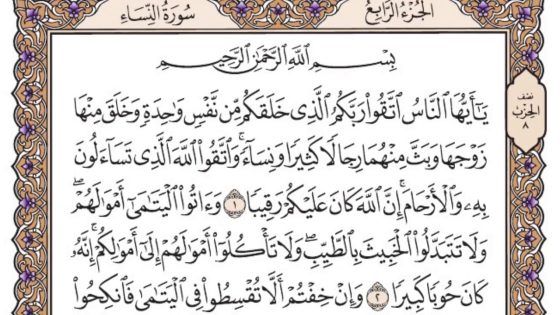 الجُزْءُ الرَّابِعُ
سُورَةُ النِّسَاءِ
بِسْمِ ٱللَّهِ ٱلرَّحْمَٰنِ ٱلرَّحِيمِ
يَٰٓأَيُّهَا ٱلنَّاسُ ٱتَّقُوا۟ رَبَّكُمُ ٱلَّذِى خَلَقَكُم مِّن نَّفْسٍ وَٰحِدَةٍ وَخَلَقَ مِنْهَا
زَوْجَهَا وَبَثَّ مِنْهُمَا رِجَالًا كَثِيرًا وَنِسَآءً ۚ وَٱتَّقُوا۟ ٱللَّهَ ٱلَّذِى تَسَآءَلُونَ
بِهِۦ وَٱلْأَرْحَامَ ۚ إِنَّ ٱللَّهَ كَانَ عَلَيْكُمْ رَقِيبًا ١ وَءَاتُوا۟ ٱلْيَتَٰمَىٰٓ أَمْوَٰلَهُمْ ۖ
وَلَا تَتَبَدَّلُوا۟ ٱلْخَبِيثَ بِٱلطَّيِّبِ ۖ وَلَا تَأْكُلُوٓا۟ أَمْوَٰلَهُمْ إِلَىٰٓ أَمْوَٰلِكُمْ ۚ إِنَّهُۥ
كَانَ حُوبًا كَبِيرًا ٢ وَإِنْ خِفْتُمْ أَلَّا تُقْسِطُوا۟ فِى ٱلْيَتَٰمَىٰ فَٱنكِحُوا۟
نصف
الحزب
٨